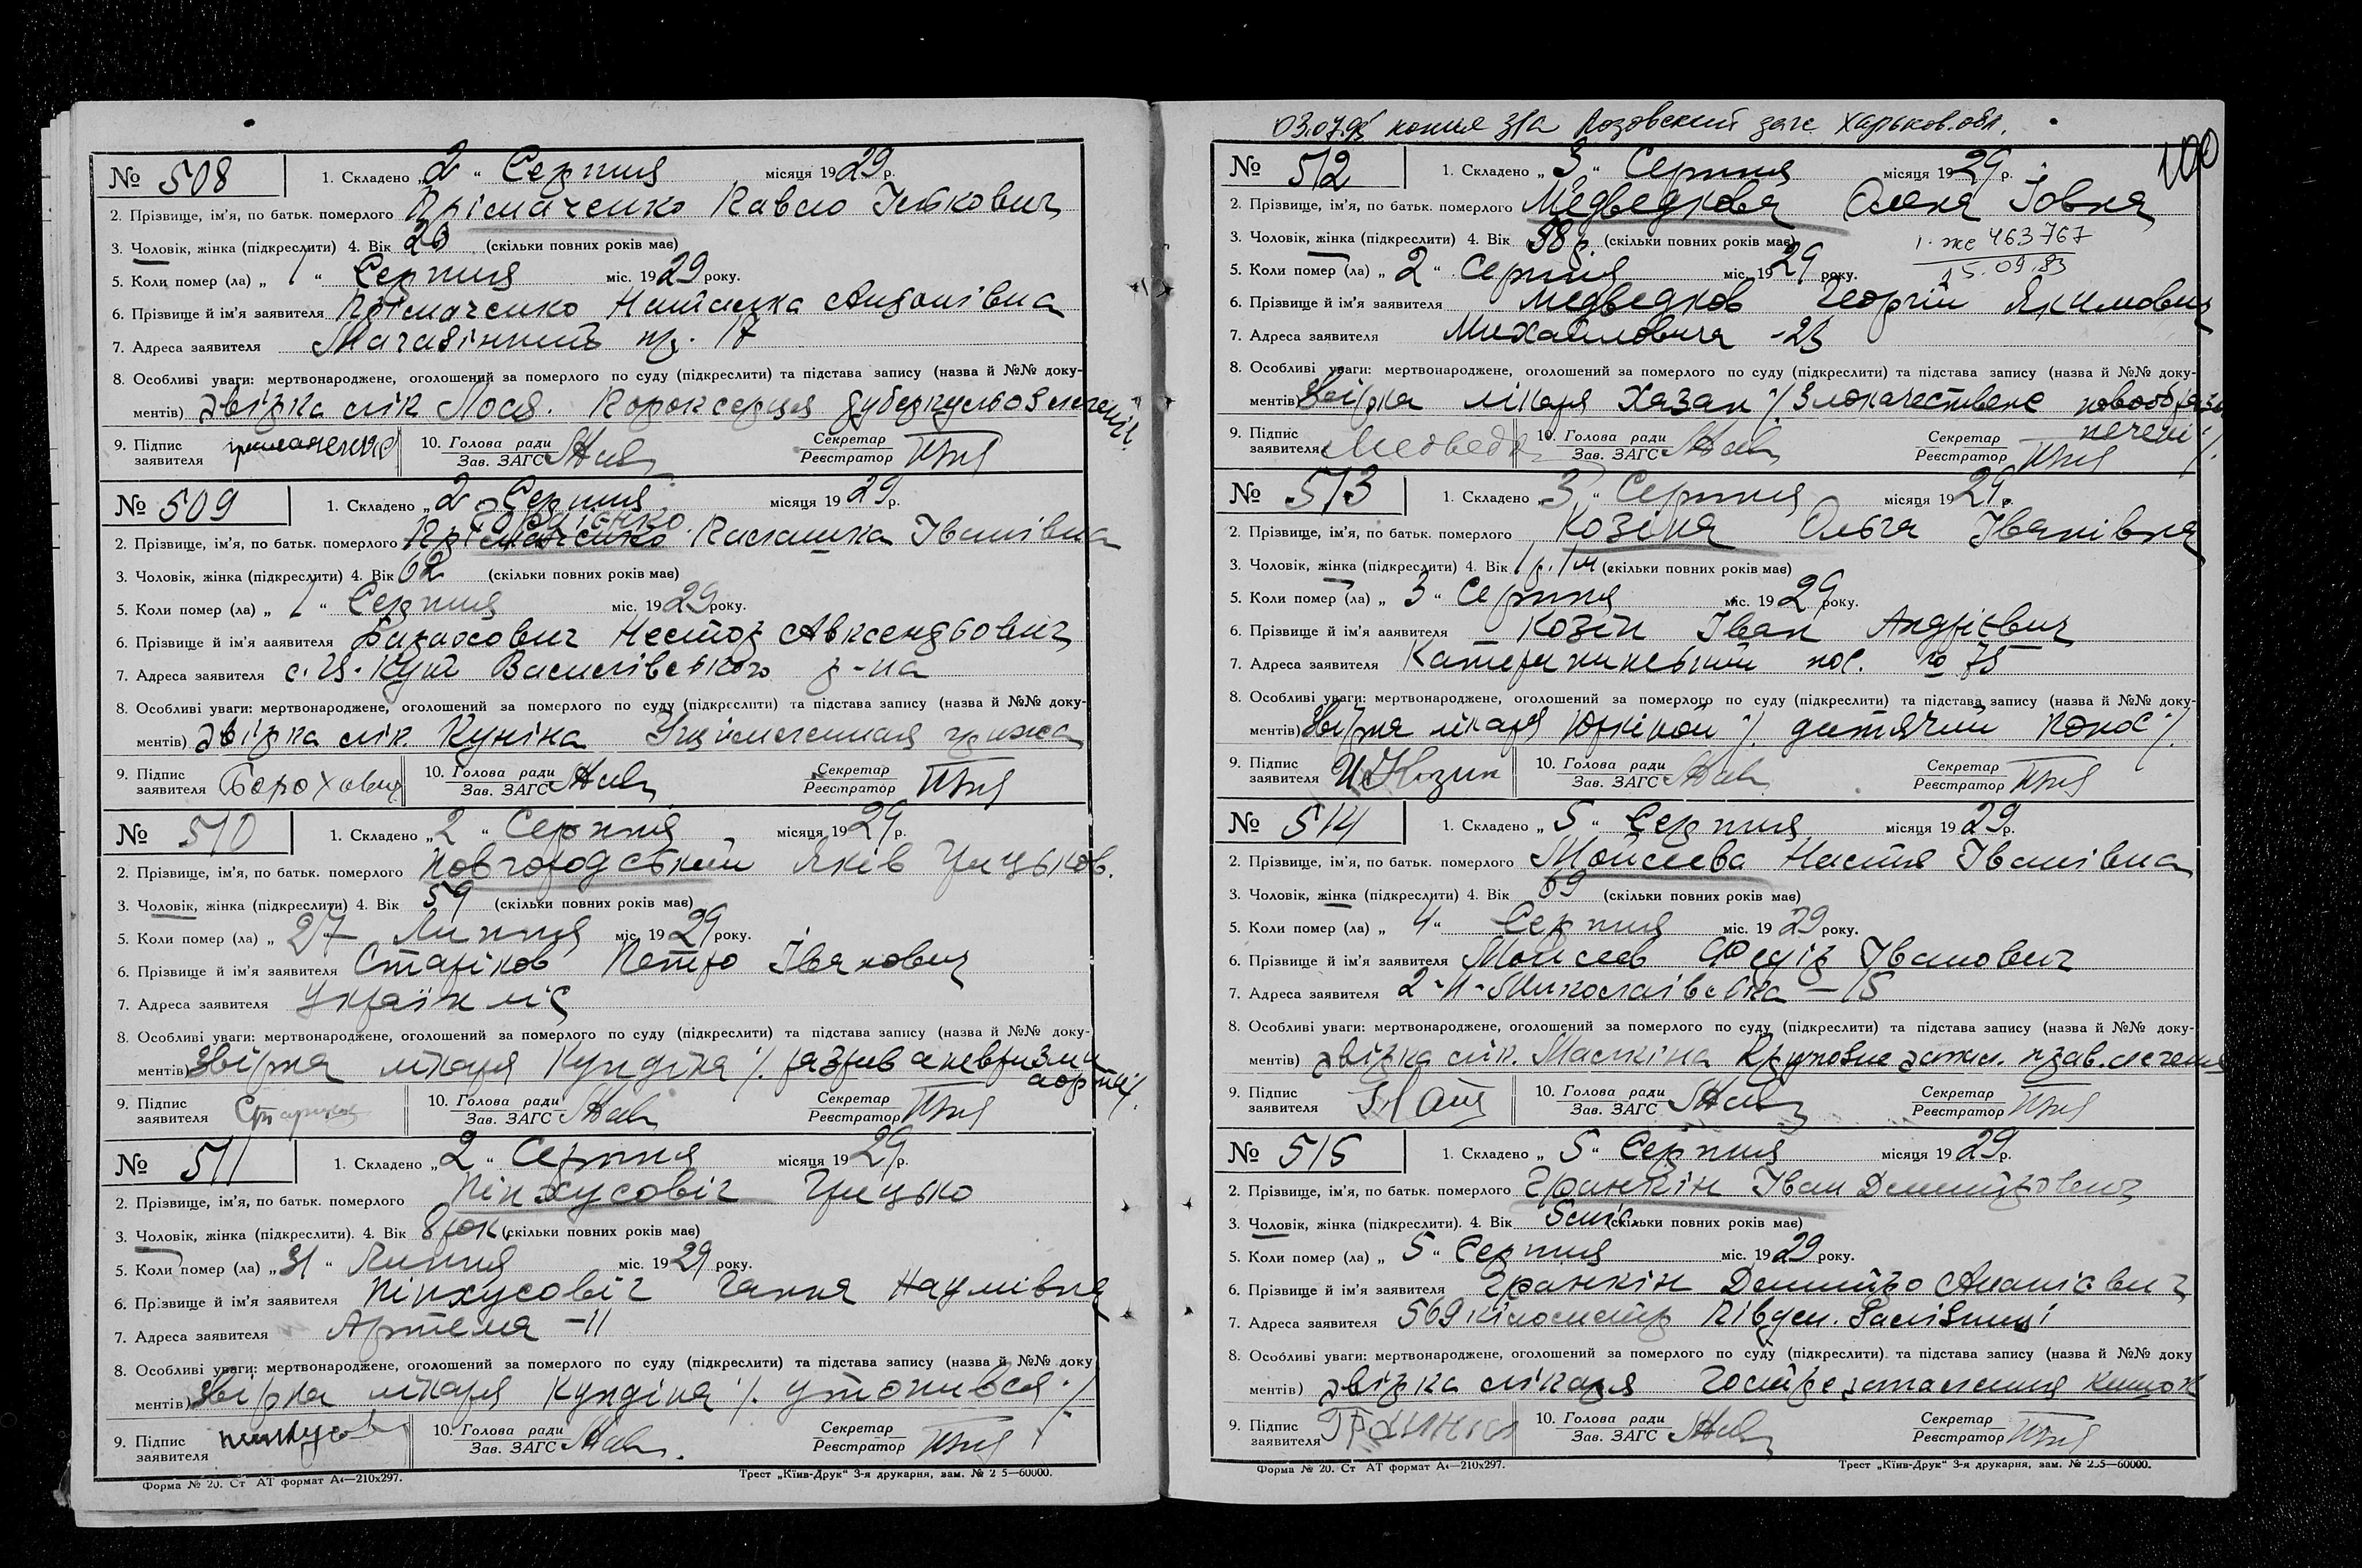 № 508 1. Складено „2“ Серпня місяця 1929 р.
2. Прізвище, ім'я, по батьк. померлого Прімаченко Павло Ількович
3. Чоловік, жінка (підкреслити) 4. Вік 26 (скільки повних років має)
5. Коли помер (ла) „1“ Серпня міс. 1929 року.
6. Прізвище й ім'я заявителя Прімаченко Наталка Андріївна
7. Адреса заявителя пр. 17
8. Особливі уваги: мертвонароджене, оголошений за померлого по суду (підкреслити) та підстава запису (назва й №№ доку-
ментів) Звірка лік Лося. Порок серця
9. Підпис заявителя 10. Голова ради Зав. ЗАГС Секретар Реєстратор
№ 509 1. Складено „2“ Серпня місяця 1929 р.
2. Прізвище, ім'я, по батьк. померлого Прімаченко Палашка Іванівна
3. Чоловік, жінка (підкреслити) 4. Вік 62 (скільки повних років має)
5. Коли помер (ла) „1“ Серпня міс. 1929 року.
6. Прізвище й ім'я заявителя Барахович Нестор Авксендьович
7. Адреса заявителя с. Кут Василівського р-на
8. Особливі уваги: мертвонароджене, оголошений за померлого по суду (підкреслити) та підстава запису (назва й №№ доку-
ментів) Звірка лік. Куніна Ущімленная грижа
9. Підпис заявителя Борохович 10. Голова ради Зав. ЗАГС Секретар Реєстратор
№ 510 1. Складено „2“ Серпня місяця 1929 р.
2. Прізвище, ім'я, по батьк. померлого Новгородський Яків Грицьков.
3. Чоловік, жінка (підкреслити) 4. Вік 59 (скільки повних років має)
5. Коли помер (ла) „27“ Липня міс. 1929 року.
6. Прізвище й ім'я заявителя Старіков Петро Іванович
7. Адреса заявителя
8. Особливі уваги: мертвонароджене, оголошений за померлого по суду (підкреслити) та підстава запису (назва й №№ доку-
ментів) Звірка лікаря Кундіна /. разрив аневризми
аорти /.
9. Підпис заявителя Стариков 10. Голова ради Зав. ЗАГС Секретар Реєстратор
№ 511 1. Складено „2“ Серпня місяця 1929 р.
2. Прізвище, ім'я, по батьк. померлого Пінхусовіч Грицько
3. Чоловік, жінка (підкреслити). 4. Вік 8 рок (скільки повних років має)
5. Коли помер (ла) „31“ Липня міс. 1929 року.
6. Прізвище й ім'я заявителя Пінхусовіч Ганна Наумівна
7. Адреса заявителя Артема -11
8. Особливі уваги: мертвонароджене, оголошений за померлого по суду (підкреслити) та підстава запису (назва й №№ доку
ментів) Звірка лікаря Кундіна /. утонився /.
9. Підпис заявителя 10. Голова ради Зав. ЗАГС Секретар Реєстратор
Форма № 20. Ст АТ формат А4—210х297. Трест „Київ-Друк“ 3-я друкарня, зам. № 2 5—60000.
03.07.95 копия з/а Лозовский загс Харьков.обл.
100
№ 512 1. Складено „3“ Серпня місяця 1929 р.
2. Прізвище, ім'я, по батьк. померлого Медведкова Олена Іовна
3. Чоловік, жінка (підкреслити) 4. Вік 58 р (скільки повних років має)
463767
15.09.83
5. Коли помер (ла) „2“ Серпня міс. 1929 року.
6. Прізвище й ім'я заявителя Медведков Георгій Якимович
7. Адреса заявителя Михайловича -23
8. Особливі уваги: мертвонароджене, оголошений за померлого по суду (підкреслити) та підстава запису (назва й №№ доку-
ментів) Звірка лікаря Хазан /. Злокачествене новообразов
печені /.
9. Підпис заявителя Медведк 10. Голова ради Зав. ЗАГС Секретар Реєстратор
№ 513 1. Складено „3“ Серпня місяця 1929 р.
2. Прізвище, ім'я, по батьк. померлого Козіна Ольга Іванівна
3. Чоловік, жінка (підкреслити) 4. Вік 1 р. 1 м (скільки повних років має)
5. Коли помер (ла) „3“ Серпня міс. 1929 року.
6. Прізвище й ім'я заявителя Козін Іван Андрієвич
7. Адреса заявителя Катерининський пос. 75
8. Особливі уваги: мертвонароджене, оголошений за померлого по суду (підкреслити) та підстава запису (назва й №№ доку-
ментів) Звірка лікаря Юркіной /. дитячий понос /.
9. Підпис заявителя И Козин 10. Голова ради Зав. ЗАГС Секретар Реєстратор
№ 514 1. Складено „5“ Серпня місяця 1929 р.
2. Прізвище, ім'я, по батьк. померлого Мойсеєва Настя Іванівна
3. Чоловік, жінка (підкреслити) 4. Вік 69 (скільки повних років має)
5. Коли помер (ла) „4“ Серпня міс. 1929 року.
6. Прізвище й ім'я заявителя Мойсеєв Федір Іванович
7. Адреса заявителя 2-й-Миколаївська – 15
8. Особливі уваги: мертвонароджене, оголошений за померлого по суду (підкреслити) та підстава запису (назва й №№ доку-
ментів) Звірка лік. Малкіна Крупозне запал. прав. легеня
9. Підпис заявителя 10. Голова ради Зав. ЗАГС Секретар Реєстратор
№ 515 1. Складено „5“ Серпня місяця 1929 р.
2. Прізвище, ім'я, по батьк. померлого Гранкін Іван Дмитрович
3. Чоловік, жінка (підкреслити). 4. Вік 5 міс. (скільки повних років має)
5. Коли помер (ла) „5“ Серпня міс. 1929 року.
6. Прізвище й ім'я заявителя Гранкін Дмитро Ананієвич
7. Адреса заявителя 569 кілометр Півден. Залізниці
8. Особливі уваги: мертвонароджене, оголошений за померлого по суду (підкреслити) та підстава запису (назва й №№ доку
ментів) Звірка лікаря Гостре запалення кишок
9. Підпис заявителя 10. Голова ради Зав. ЗАГС Секретар Реєстратор
Форма № 20. Ст АТ формат А4—210х297. Трест „Київ-Друк“ 3-я друкарня, зам. № 235—60000.